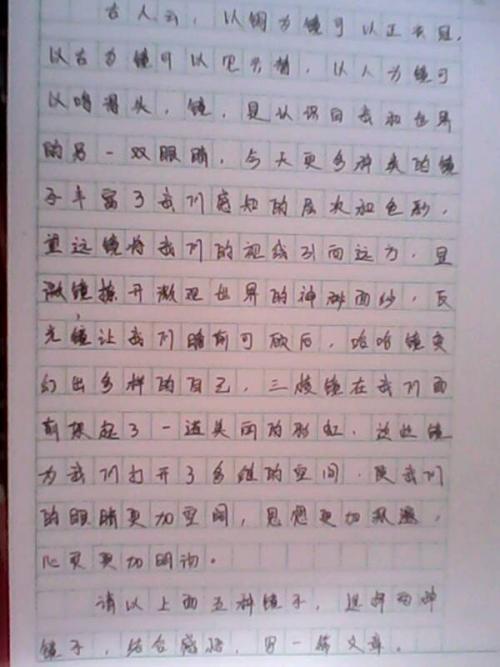 古人云，以铜为镜可以正衣冠，
以古为镜可以见兴替，以人为镜可
以明得失，镜，是认识自我和世界
的另一双眼睛，今天更多种类的镜
子丰富了我们感知的层次和色彩，
望远镜将我们的视线引向远方，显
微镜撩开微观世界的神秘面纱，反
光镜让我们瞻前可顾后，哈哈镜变
幻出多样的自己，三棱镜在我们面
前架起了一道美丽的彩虹，这些镜
为我们打开了多维的空间，使我们
的眼睛更加，思想更加，
心灵更加明。
请以上面五种镜子，选择两种
镜子，结合感悟，写一篇文章。